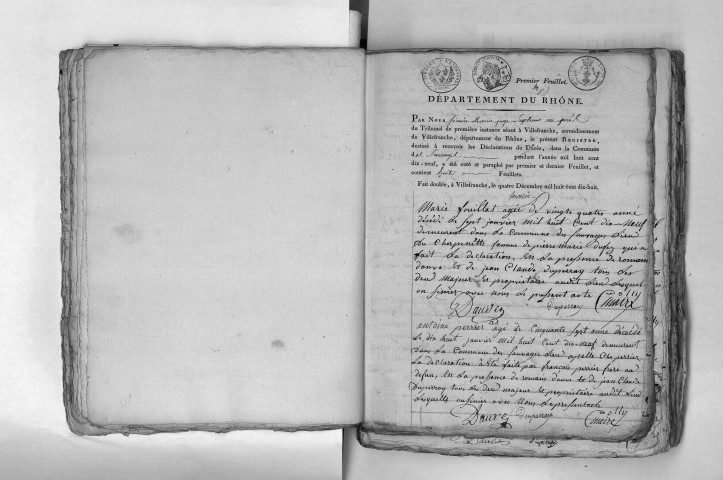 Premier Feuillet.
DÉPARTEMENT DU RHÔNE.
PAR NOUS
du Tribunal de première instance séant à Villefranche, arrondissement
de Villefranche, département du Rhône, le présent REGISTRE,
destiné à recevoir les Déclarations de Décès, dans la Commune
pendant l'année mil huit cent
dix-neuf, a été coté et paraphé par premier et dernier Feuillet, et
contient huit Feuillets.
Fait double, à Villefranche, le quatre Décembre mil huit cent dix-huit.
Marie fouillat agée de vingt quatre anné
décédé le sept janvier mil huit Cent dix-Neuf
demeurent dans la Commune des sauvages Lieu
femme de pierre marie dufey qui a
fait La declaration, En La pressence de romain
dauve Et de jean Claude duperray tous Les
deu majeur Et propriétaire audit Lieu Lesquel
on signer avec nous Le present acte
Duperray
antoine perrier agé de Cinquante sept anne décédé
Le dix huit janvier mil huit Cent dix-Neuf demeurent
dans La Commune des sauvages Lieu apelle Ches perrier
La declaration a Eté fait par français perrier frere au
defun, En La presence de romain dauve Et de jean Claude
Duperray tous Les deu majeur Et propriétaire audit Lieu
Lesquelle on signer avec Nous Le present acte
duperray